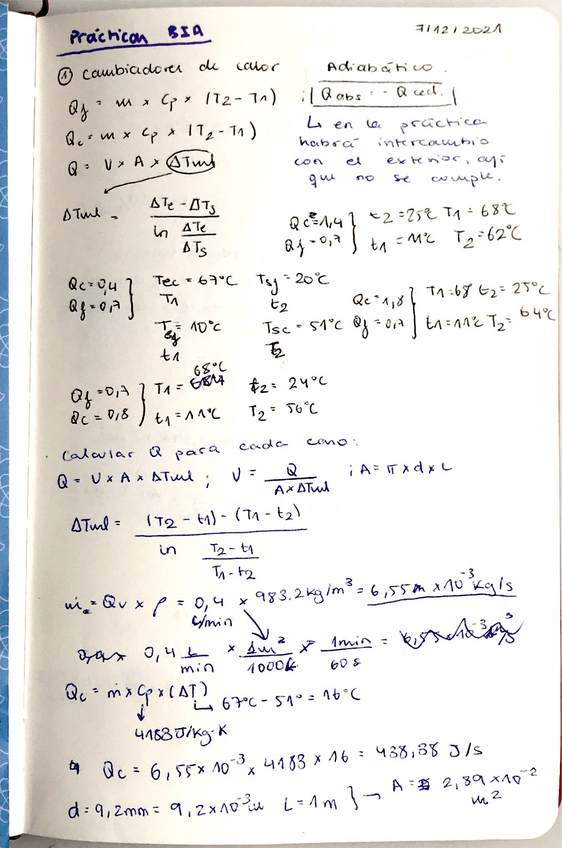 Prácticas BIA 7/12/2021
① Cambiadores de calor Adiabático.
Qf = m x Cp x (T2 - T1) ; Qabs = - Qced.
Qc = m x Cp x (T2 - T1) ↳ en la práctica
habrá intercambio
Q = U x A x ΔTml con el exterior, así
que no se cumple.
ΔTml = ΔTe - ΔTs / ln ΔTe / ΔTs
Qc = 1,4 Qf = 0,7 } t2 = 25°C T1 = 68°C t1 = 11°C T2 = 62°C
Qc = 0,4 Qf = 0,7 } Tec = 67°C T1 Tsf = 20°C t2
Tef = 10°C t1 Tsc = 51°C T2
Qc = 1,8 Qf = 0,7 } T1 = 68 t2 = 25°C t1 = 11°C T2 = 64°C
Qf = 0,7 Qc = 0,8 } T1 = 68°C t2 = 24°C
t1 = 11°C T2 = 56°C
Calcular Q para cada caso:
Q = U x A x ΔTml ; U = Q / A x ΔTml ; A = π x d x L
ΔTml = (T2 - t1) - (T1 - t2) / ln T2 - t1 / T1 - t2
ṁc = Qv x ρ = 0,4 L/min x 983.2 kg/m³ = 6,55 x 10⁻³ kg/s
0,4 L/min x 1m³/1000L x 1min/60s =
Qc = ṁ x Cp x (ΔT)
↳ 67°C - 51° = 16°C
4183 J/kg·K
↳ Qc = 6,55 x 10⁻³ x 4183 x 16 = 438,38 J/s
d = 9,2mm = 9,2 x 10⁻³ m L = 1m } → A = 2,89 x 10⁻² m²